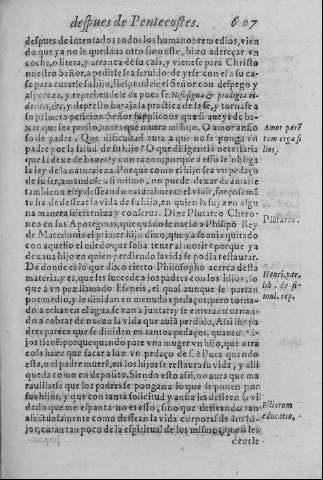 despues de Pentecostes. 607
despues de intentados todos los humanos remedios, vien
do que ya no le quedaua otro sino este, hizo adereçar vn
coche, o litera, y arranca desu casa, y vienese para Christo
nuestro Señor, a pedirle sea seruido de yrse con el a su ca
sa para curarle su hijo, Respondele el Señor con despego y
aspereza, y reprehendele de poca fe: Nisi signa & prodigia vi
deritis, &c. y depresto baraja la practica de la fe, y tornase a
su primera peticion Señor suplico os que si aueys de ba-
xar que sea presto, antes que muera mi hijo. O amor ansio
so de padre. Que dificultad aura a que no se ponga vn
padre por la salud de su hijo? O que diligencia necessaria
que la dexe de hazer? y con razon: porque a esso le obliga
la ley de la naturaleza. Porque como el hijo sea vn pedaço
de su ser, amandose a si mismo, no puede dexar de amarle
tambien a el: y desseando naturalmente el viuir, forçosamẽ
te ha de dessear la vida de su hijo, en quien la suya en algu
na manera se eterniza y conserua. Dize Plutarco Chero-
neo en sus Apotegmas, que quãdo le nacio a Philipo Rey
de Macedonia el primer hijo dixo, que ya se auia quitado
con aquello el miedo que solia tener al morir: porque ya
dexaua hijo en quien perdiendo la vida se podia restaurar.
De donde es lo que dixo cierto Philosopho acerca desta
materia, y es, que les sucede a los padres con los hijos, lo
que a vn pez llamado el qual aunque le partan
por medio, y le diuidan en menudos pedaços; pero tornã-
do a echar en el agua, se van a juntar: y se enteran tornan-
do a cobrar de nueuo la vida que auia perdido. Assi los pa
dres parece que se diuiden en tantos pedaços, quantos hi-
jos tienẽ: porque quando pare vna muger vn hijo, que otra
cosa haze que sacar a luz vn pedaço de si? Pues quando
esta, o el padre muerẽ, en los hijos se restaura la vida, y alli
queda como en deposito. Siendo esto assi, no aura que ma
rauillarse que los padres se pongan a lo que se ponen por
sus hijos, y que con tanta solicitud y ansia les desseen la vi
da: lo que me espanta no es esso, sino que desseando tan
afectuosamente como dessean la vida corporal de los hi-
jos, curan tan poco de la espiritual de los mismos, que si les
deuele
Amor parẽ
tum erga fi
lios.
Plutarco.
Henri. par.
lib. de si-
mul. rep.
Filiorum
educatio.